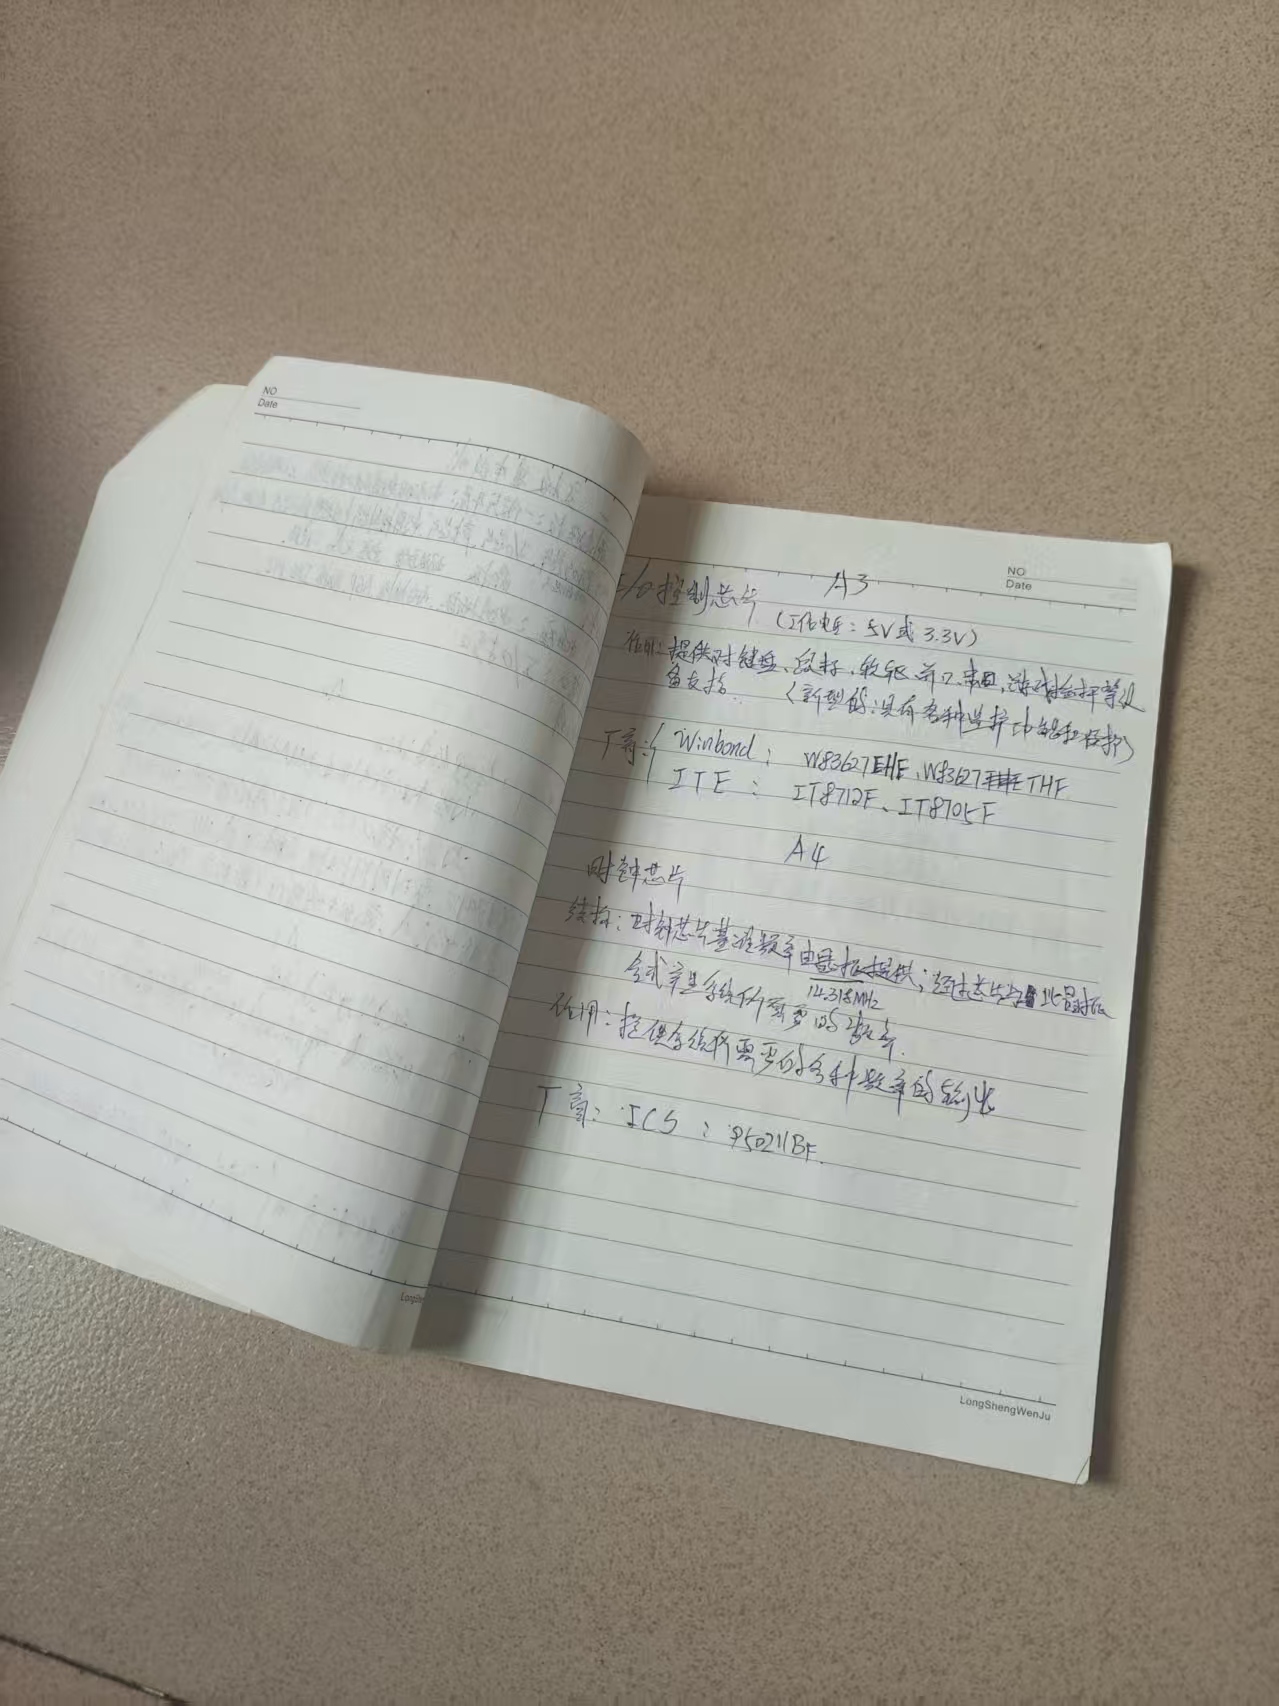 NO
Date
NO
Date
A3
I/O控制芯片 (工作电压:5V或3.3V)
作用:提供对键盘、鼠标、软驱、并口、串口、游戏摇杆等设
备支持. (新型的:具有各种监控功能和保护)
厂商:{ Winbond : W83627EHF、W83627THF
ITE : IT8712F、IT8705F
A4
时钟芯片
结构:时钟芯片基准频率由晶振提供;经过芯片与晶振
14.318MHz
合成产生系统所需要的频率.
作用:提供系统所需要的各种频率的输出
厂商:ICS : 950211BF.
LongShengWenJu